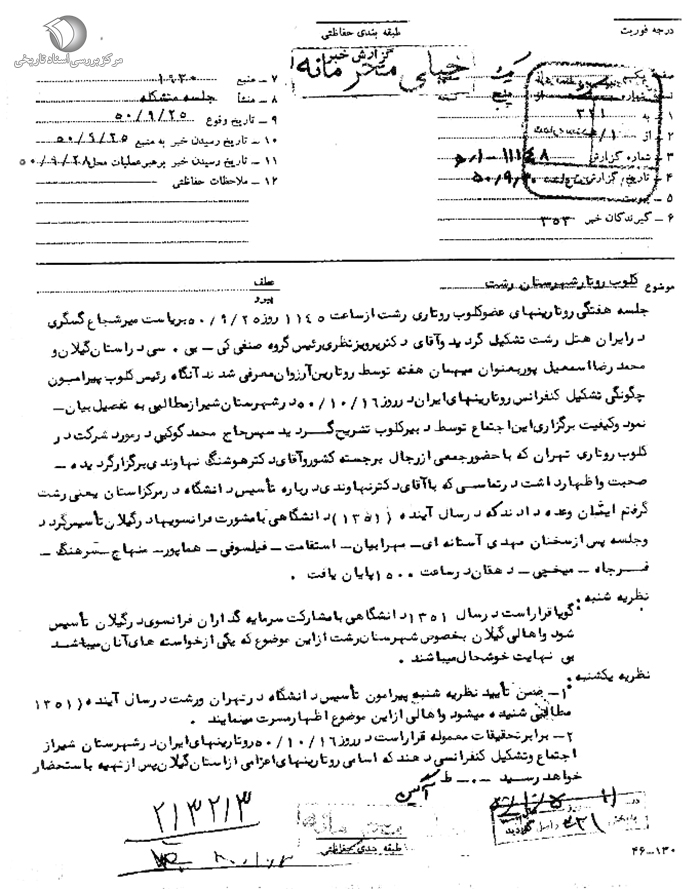 مرکز بررسی اسناد تاریخی
درجه فوریت
طبقه بندی حفاظتی
گزارش خبر
خیلی محرمانه
۱ – به ۳۲۱
۲ – از
۳ – شماره گزارش
۴ – تاریخ گزارش ۵۰/۹/۳۰
۵ – پیوست
۶ – گیرندگان خبر ۳۵۳
۷ – منبع ۱۹۳۰
۸ – منشأ جلسه متشکله
۹ – تاریخ وقوع ۵۰/۹/۲۵
۱۰ – تاریخ رسیدن خبر به منبع ۵۰/۹/۲۵
۱۱ – تاریخ رسیدن خبر برهبر عملیات محل ۵۰/۹/۲۸
۱۲ – ملاحظات حفاظتی
موضوع کلوب روتار شهرستان رشت
عطف
پیرو
جلسه هفتگی روتارینهای عضو کلوب روتاری رشت از ساعت ۱۱۴۵ روز ۵۰/۹/۲۵ بریاست میرشجاع گسگری
در ایران هتل رشت تشکیل گردید و آقای دکتر پرویز نظری رئیس گروه صنفی کی – بی . سی در استان گیلان و
محمد رضا اسمعیل پور بعنوان میهمان هفته توسط روتارین آرزوان معرفی شدند آنگاه رئیس کلوب پیرامون
چگونگی تشکیل کنفرانس روتارینهای ایران در روز ۵۰/۱۰/۱۶ در شهرستان شیراز مطالبی به تفصیل بیان –
نمود و کیفیت برگزاری این اجتماع توسط دبیر کلوب تشریح گردید سپس حاج محمد کوکبی در مورد شرکت در
کلوب روتاری تهران که با حضور جمعی از رجال برجسته کشور و آقای دکتر هوشنگ نهاوندی برگزار گردیده –
صحبت و اظهار داشت در تماسی که با آقای دکتر نهاوندی درباره تأسیس دانشگاه در مرکز استان یعنی رشت
گرفتم ایشان وعده دادند که در سال آینده (۱۳۵۱) دانشگاهی با مشورت فرانسویها در گیلان تأسیس گردد و
جلسه پس از سخنان مهدی آستانه ای – مهرابیان – استقامت – فیلسوفی – هماپور – منهاج – سرهنگ –
فرجاه – میخچی – دهقان در ساعت ۱۵۰۰ پایان یافت .
نظریه شنبه :
گویا قرار است در سال ۱۳۵۱ دانشگاهی با مشارکت سرمایه گذاران فرانسوی در گیلان تأسیس
شود و اهالی گیلان بخصوص شهرستان رشت از این موضوع که یکی از خواسته های آنان میباشد
بی نهایت خوشحال میباشند .
نظریه یکشنبه :
۱ – ضمن تأیید نظریه شنبه پیرامون تأسیس دانشگاه در تهران و رشت در سال آینده (۱۳۵۱
مطالبی شنیده میشود و اهالی از این موضوع اظهار مسرت مینمایند .
۲ – برابر تحقیقات معموله قرار است در روز ۵۰/۱۰/۱۶ روتارینهای ایران در شهرستان شیراز
اجتماع و تشکیل کنفرانسی دهند که اسامی روتارینهای اعزامی از استان گیلان پس از تهیه باستحضار
خواهد رسید –۰– ط
۲۱۳۲۱۳
طبقه بندی حفاظتی
۴۶–۱۳۰